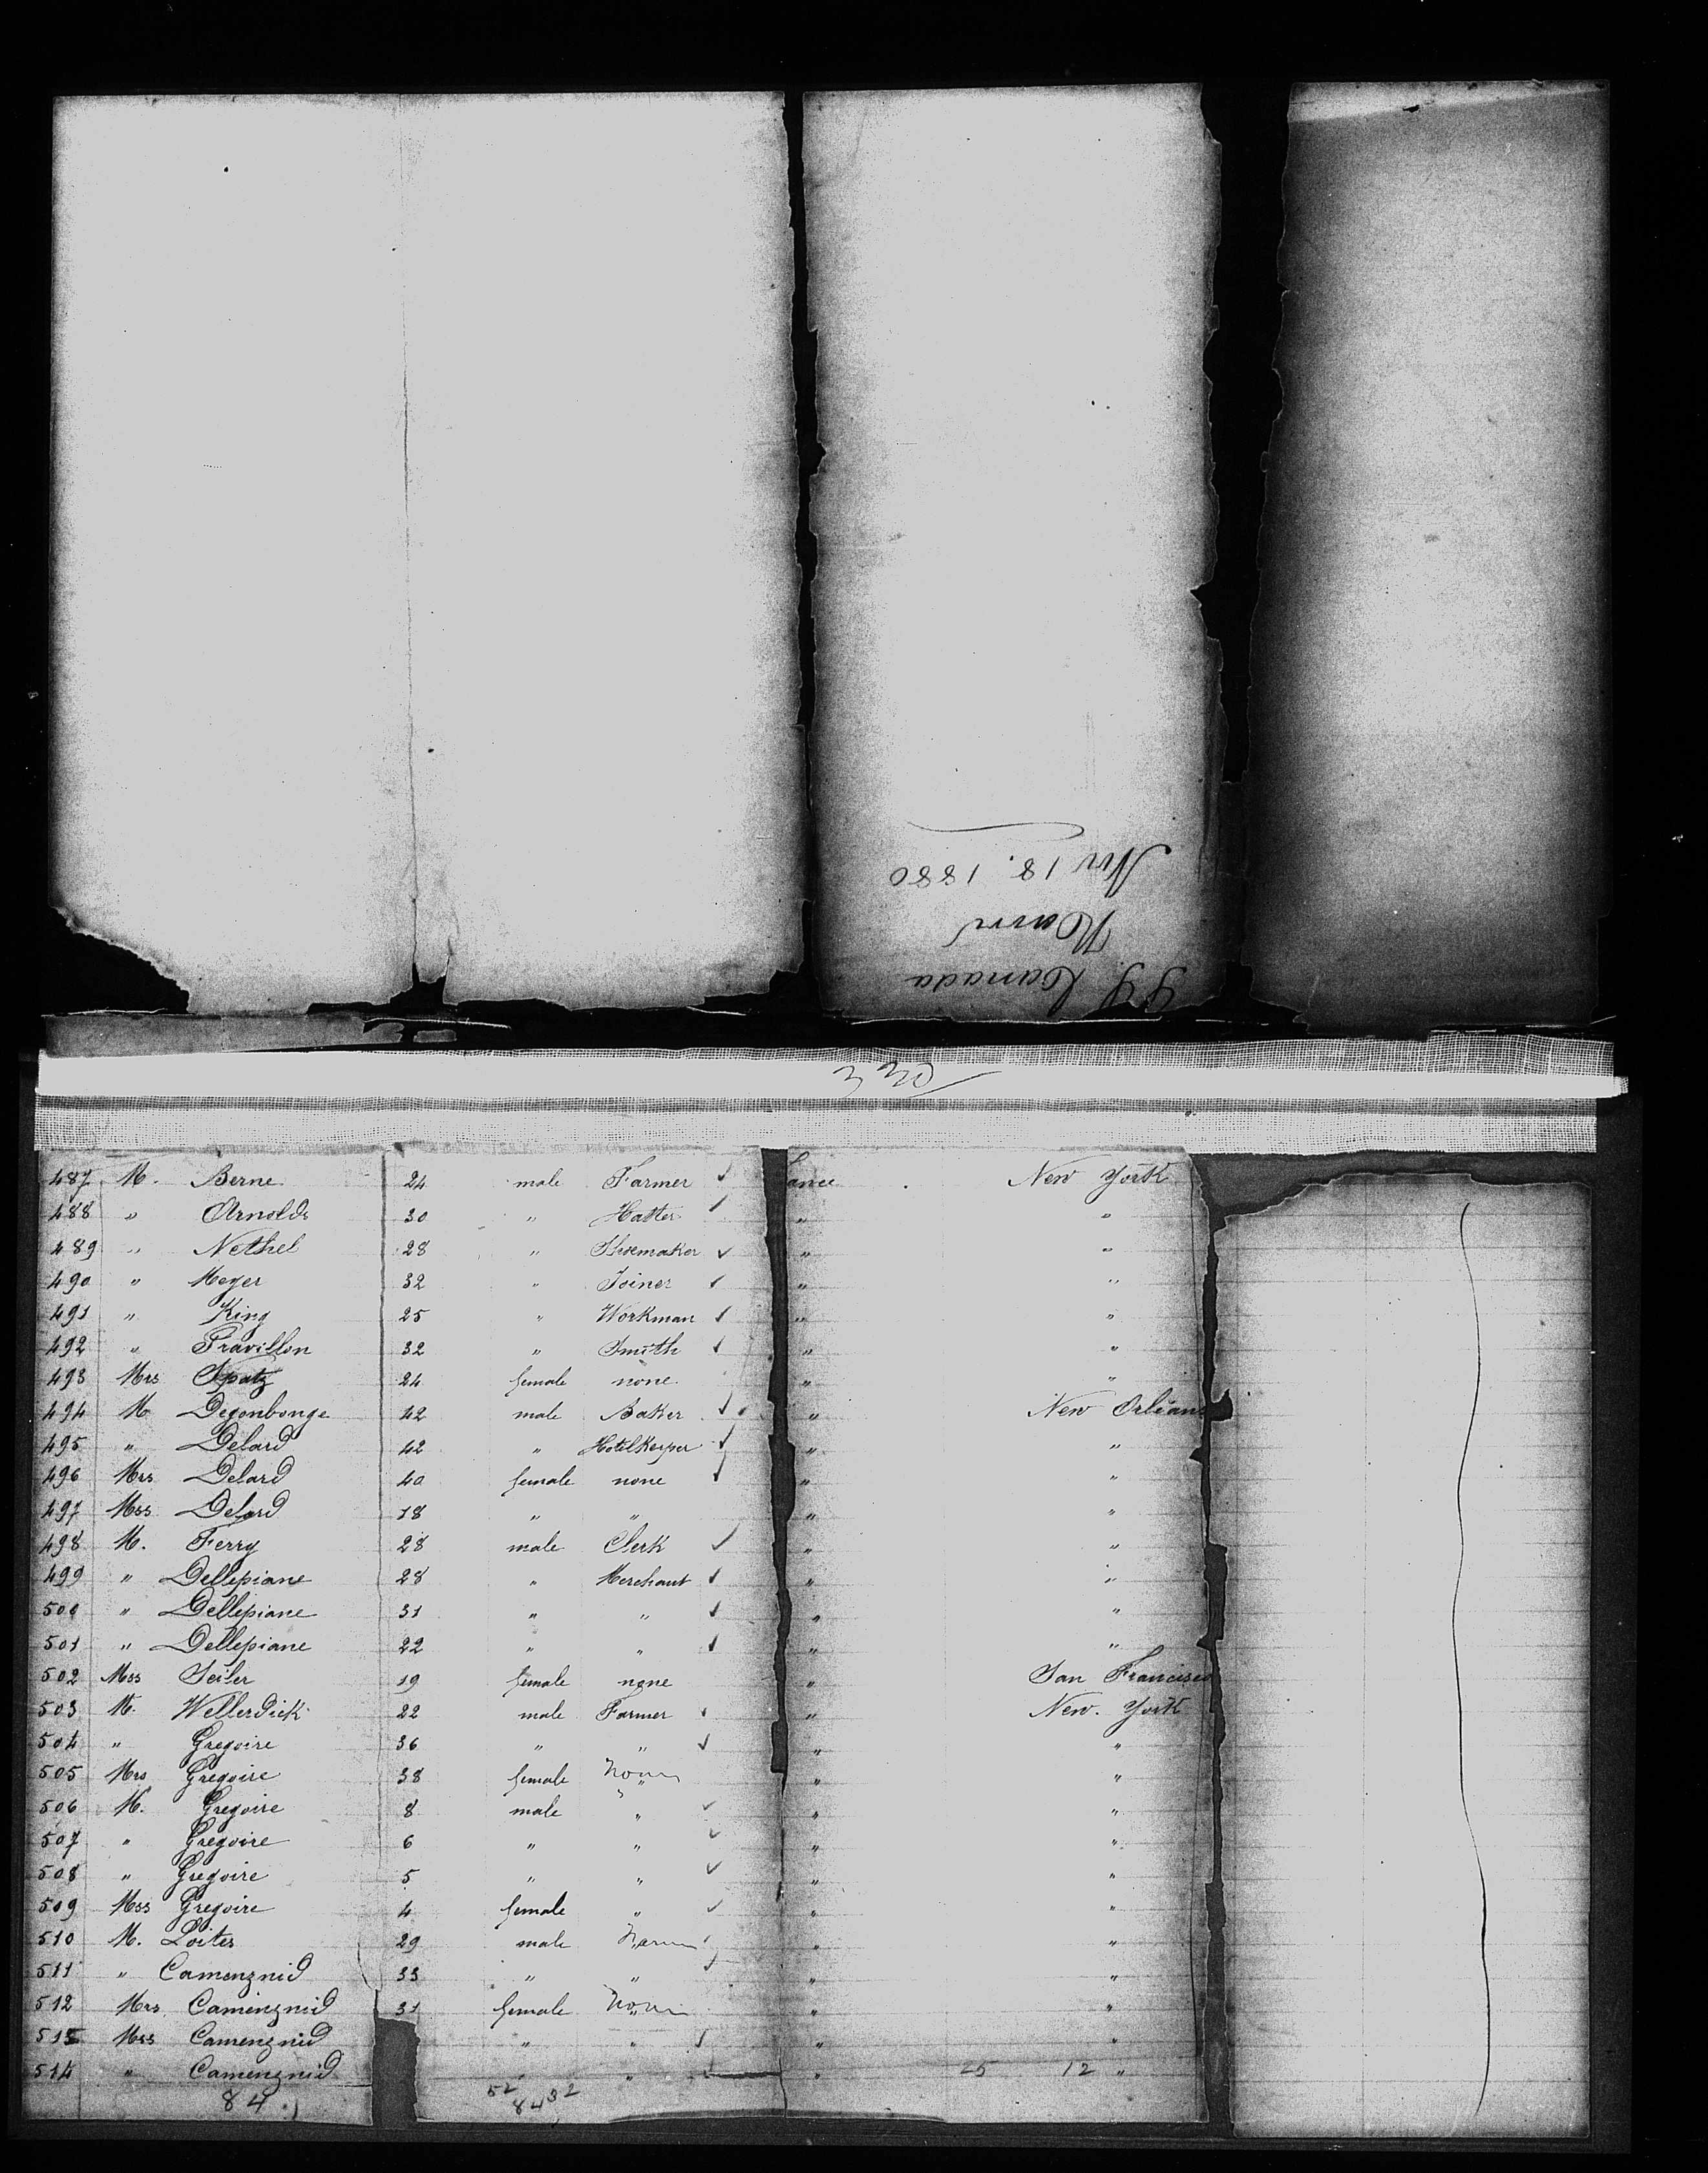 S.S. Canada
Havre
Nov 18. 1880
330
487 M. Berne 24 male Farmer ✓ France New York
488 " Arnolds 30 " Hatter ✓ " "
489 " Nethel 28 " Shoemaker ✓ " "
490 " Meyer 32 " Joiner ✓ " "
491 " King 25 " Workman ✓ " "
492 " Pravillon 32 " Smith ✓ " "
493 Mrs Spatz 24 female none " "
494 M Degonbonge 42 male Baker ✓ " New Orleans
495 " Delard 42 " Hotelkeeper ✓ " "
496 Mrs Delard 40 female none ✓ " "
497 Mss Delard 18 " " " "
498 M. Ferry 28 male Clerk ✓ " "
499 " Dellepiane 28 " Merchant ✓ " "
500 " Dellepiane 31 " " ✓ " "
501 " Dellepiane 22 " " ✓ " "
502 Mss Seiler 19 female none " San Francisco
503 M. Wellerdick 22 male Farmer ✓ " New. York
504 " Gregoire 36 " " ✓ " "
505 Mrs Gregoire 38 female None " "
506 M. Gregoire 8 male " ✓ " "
507 " Gregoire 6 " " ✓ " "
508 " Gregoire 5 " " ✓ " "
509 Mss Gregoire 4 female " ✓ " "
510 M. Loites 29 male Farmer ✓ " "
511 " Camenznid 33 " " ✓ " "
512 Mrs Camenznid 31 female None " "
513 Mss Camenznid " " ✓ " "
514 " Camenznid " " ✓ " 25 12 "
84 52 32
84